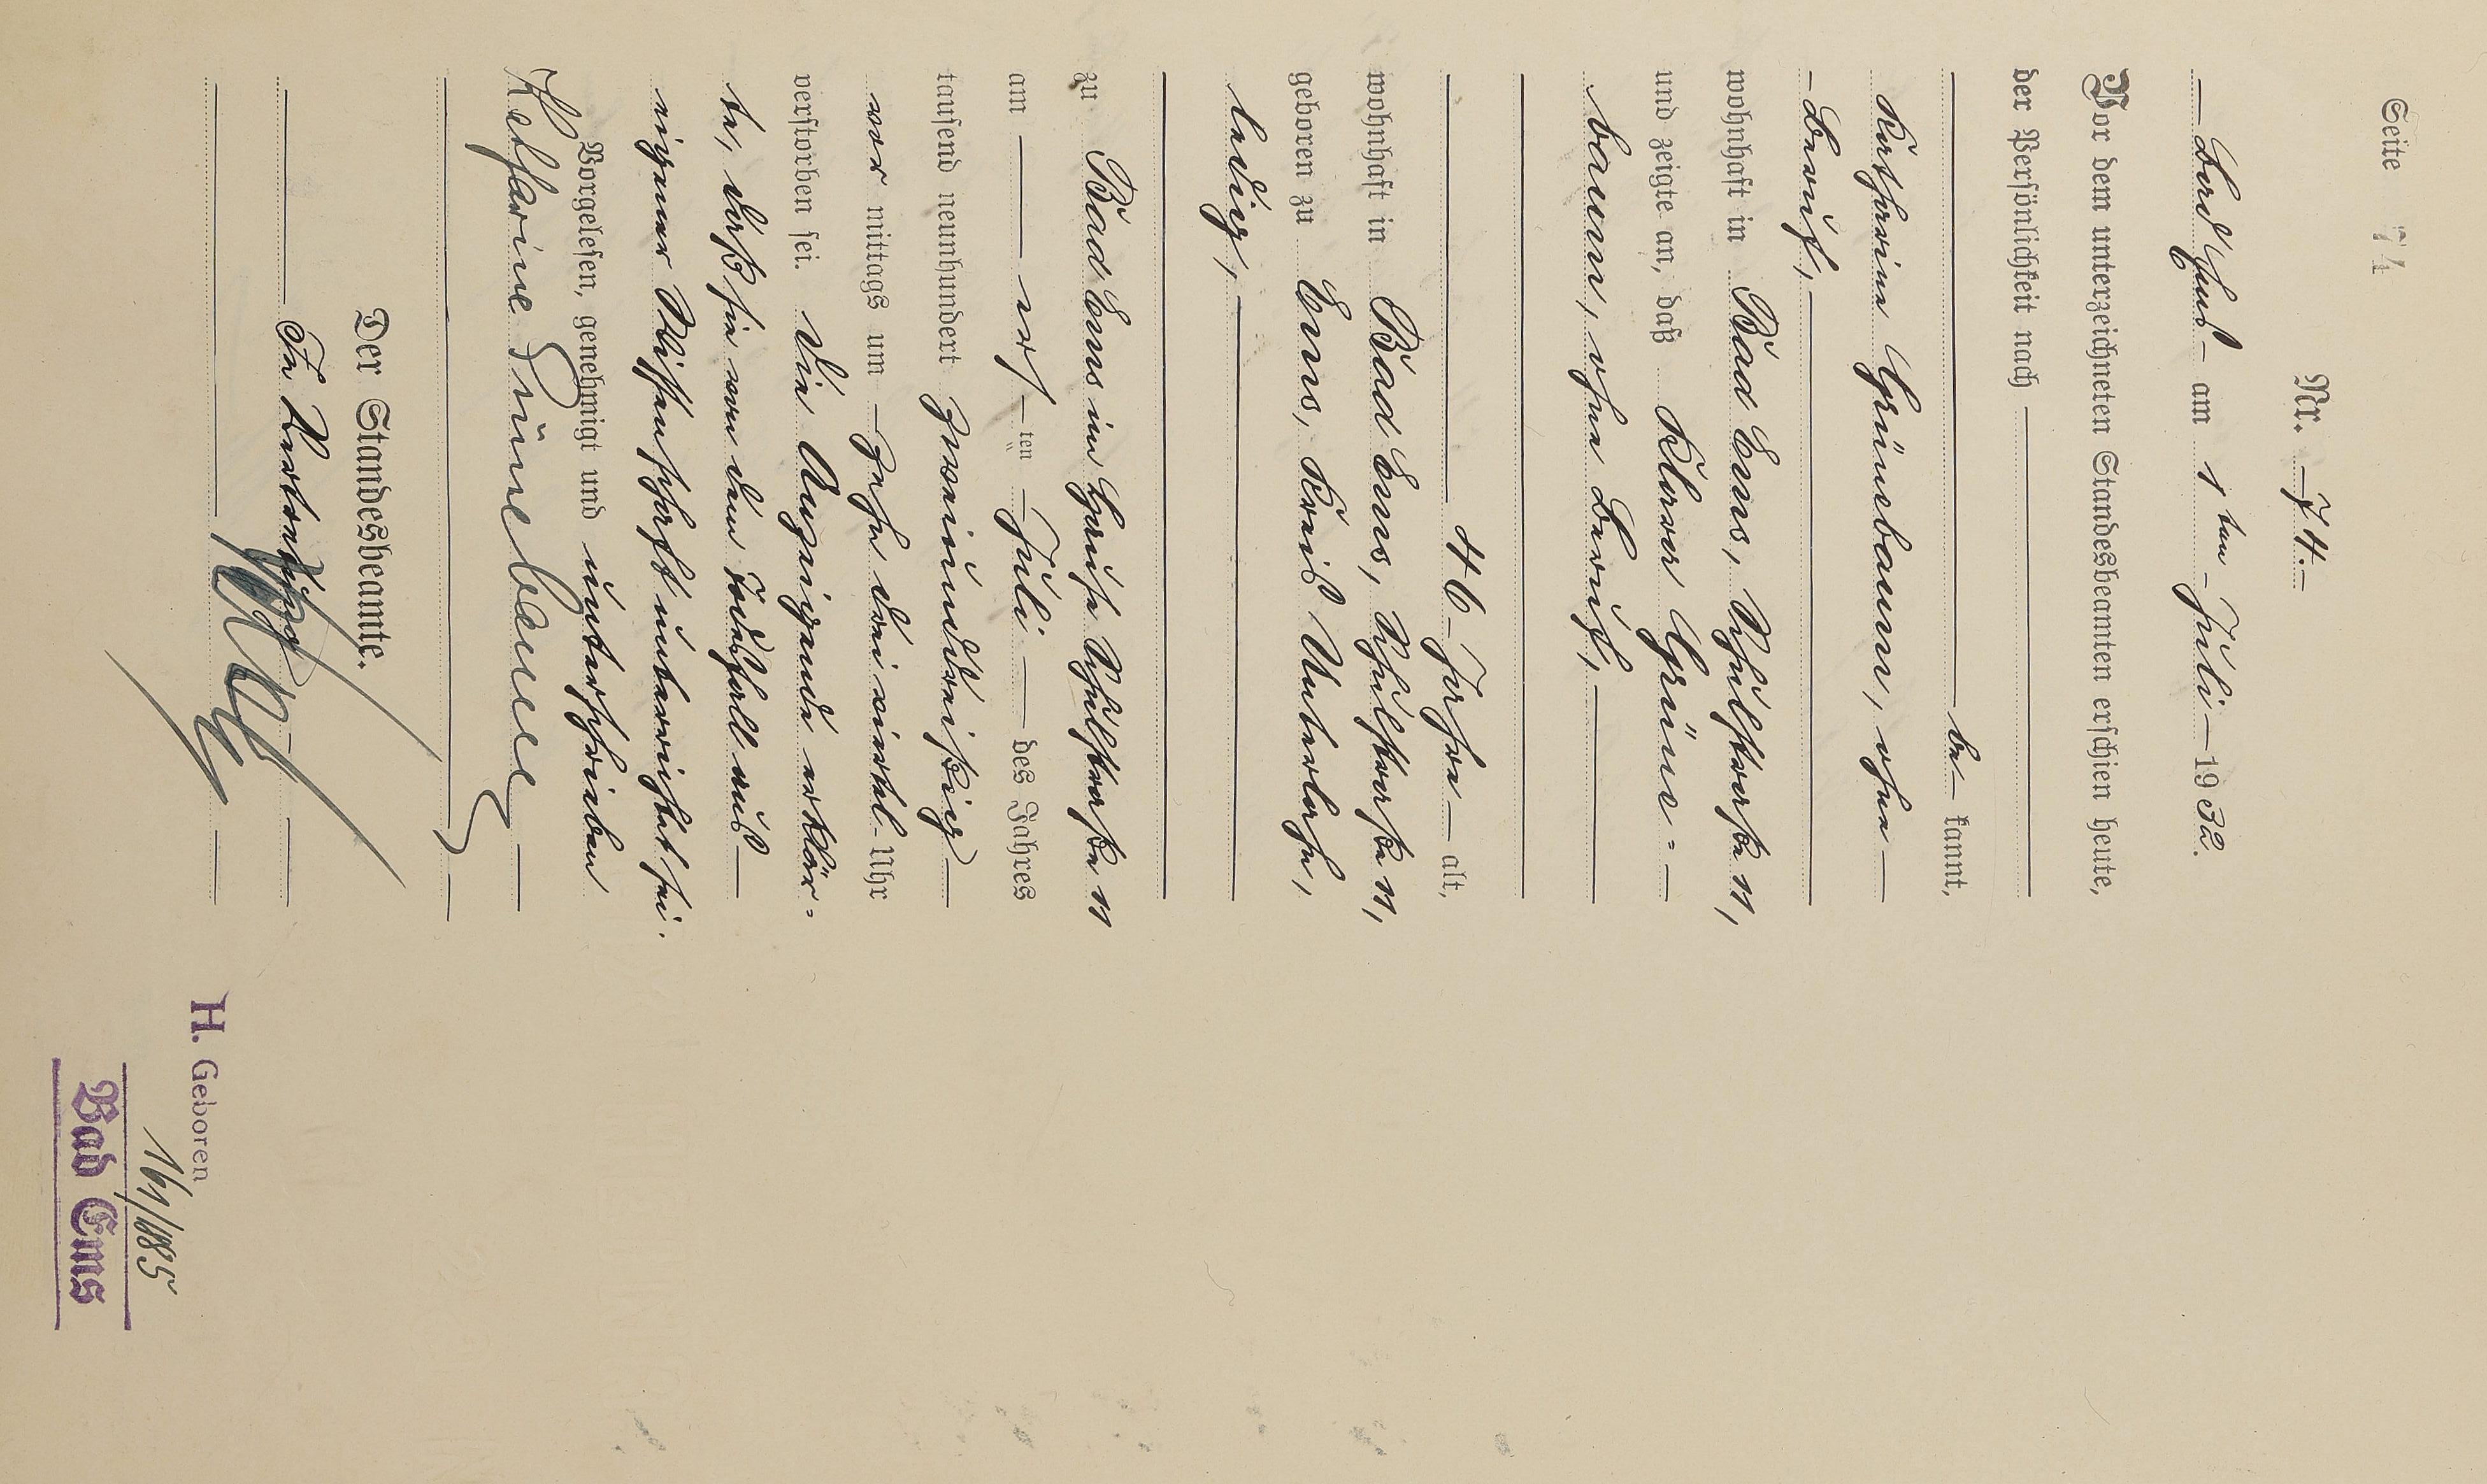 Seite 74
Nr. 74.
Bad Ems am 1ten Juli 1932.
Vor dem unterzeichneten Standesbeamten erschien heute,
der Persönlichkeit nach
be kannt,
Katharine Grünebaum, ohne
Beruf,
wohnhaft in Bad Ems, Schulstraße 11,
und zeigte an, daß Klara Grüne-
baum, ohne Beruf,
46 Jahre alt,
wohnhaft in Bad Ems, Schulstraße 11,
geboren zu Ems, Kreis Unterlahn,
ledig,
zu Bad Ems im Hause Schulstraße 11
am ersten Juli des Jahres
tausend neunhundert zweiunddreißig
vor mittags um zehn drei viertel Uhr
verstorben sei. Die Anzeigende erklär-
te, daß sie von dem Todesfall aus
eigener Wissenschaft unterrichtet sei.
Vorgelesen, genehmigt und unterschrieben
Katharine Grünebaum
Der Standesbeamte.
In Vertretung
H. Geboren
16/1/1885
Bad Ems